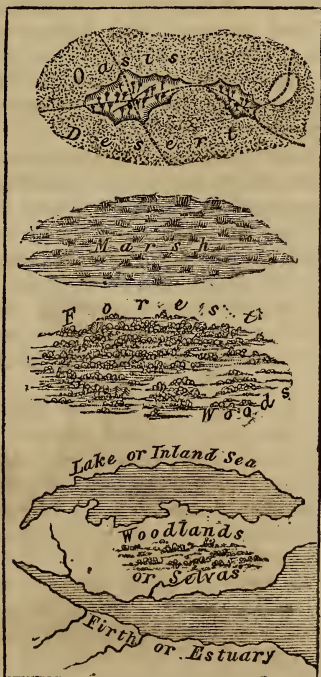 Oasis
Desert
Marsh
Forest
Woods
Lake or Inland Sea
Woodlands
or Selvas
Firth or Estuary